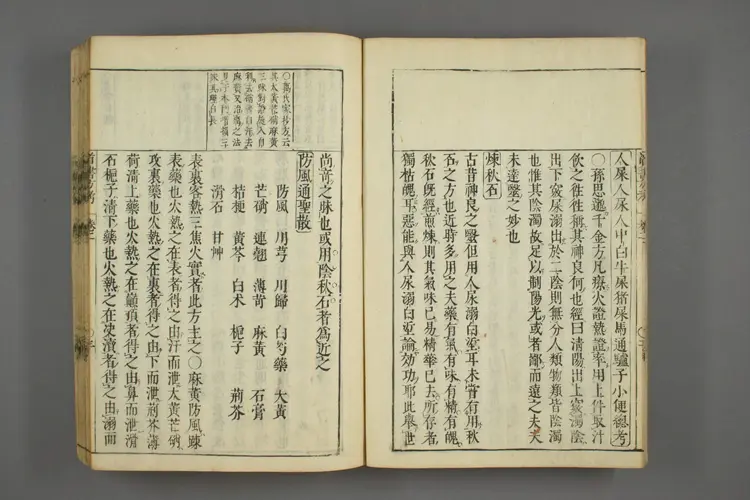 人尿人屎人中白牛屎猪屎馬通驢子小便總考
○孫思邈千金方凡療火證熱證率用上件取汁
飲之徃徃稱其神良何也經曰清陽出上竅濁陰
出下竅尿溺出於二陰則無分人類物類皆陰濁
也惟其陰濁故足以制陽光或者鄙而遠之夫夫
未達醫之妙也
煉秋石
古昔神良之醫但用人尿溺白垽耳未嘗有用秋
石之方也近時多用之夫藥有氣有味有精有魄
秋石旣經煎煉則其氣味已易精華已去所存者
獨枯魄耳惡能與人尿溺白垽論效功耶此舉世
尚奇之昧也或用陰秋石者爲近之
防風通聖散
防風 川芎 川歸 白芍藥 大黄
芒硝 連翹 薄苛 麻黄 石膏
桔梗 黄芩 白术 梔子 荆芥
滑石 甘艸
表裏客熱三焦火實者此方主之○麻黄防風踈
表藥也火熱之在表者得之由汗而泄大黄芒硝
攻裏藥也火熱之在裏者得之由下而泄荆芥薄
荷清上藥也火熱之在巔頂者得之由鼻而泄滑
石梔子清下藥也火熱之在决瀆者得之由溺而